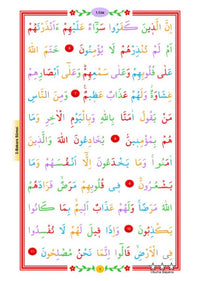 1.Cüz
اِنَّ الَّذٖينَ كَفَرُوا سَوَٓاءٌ عَلَيْهِمْ ءَاَنْذَرْتَهُمْ
اَمْ لَمْ تُنْذِرْهُمْ لَا يُؤْمِنُونَ ٦ خَتَمَ اللّٰهُ
عَلٰى قُلُوبِهِمْ وَعَلٰى سَمْعِهِمْ وَعَلٰٓى اَبْصَارِهِمْ
غِشَاوَةٌ وَلَهُمْ عَذَابٌ عَظٖيمٌ ٧ وَمِنَ النَّاسِ
مَنْ يَقُولُ اٰمَنَّا بِاللّٰهِ وَبِالْيَوْمِ الْاٰخِرِ وَمَا
هُمْ بِمُؤْمِنٖينَ ٨ يُخَادِعُونَ اللّٰهَ وَالَّذٖينَ
اٰمَنُوا وَمَا يَخْدَعُونَ اِلَّٓا اَنْفُسَهُمْ وَمَا
يَشْعُرُونَ ٩ فٖى قُلُوبِهِمْ مَرَضٌ فَزَادَهُمُ
اللّٰهُ مَرَضًا وَلَهُمْ عَذَابٌ اَلٖيمٌ بِمَا كَانُوا
يَكْذِبُونَ ١٠ وَاِذَا قٖيلَ لَهُمْ لَا تُفْسِدُوا
فِى الْاَرْضِ قَالُٓوا اِنَّمَا نَحْنُ مُصْلِحُونَ ١١
2-Bakara Sûresi